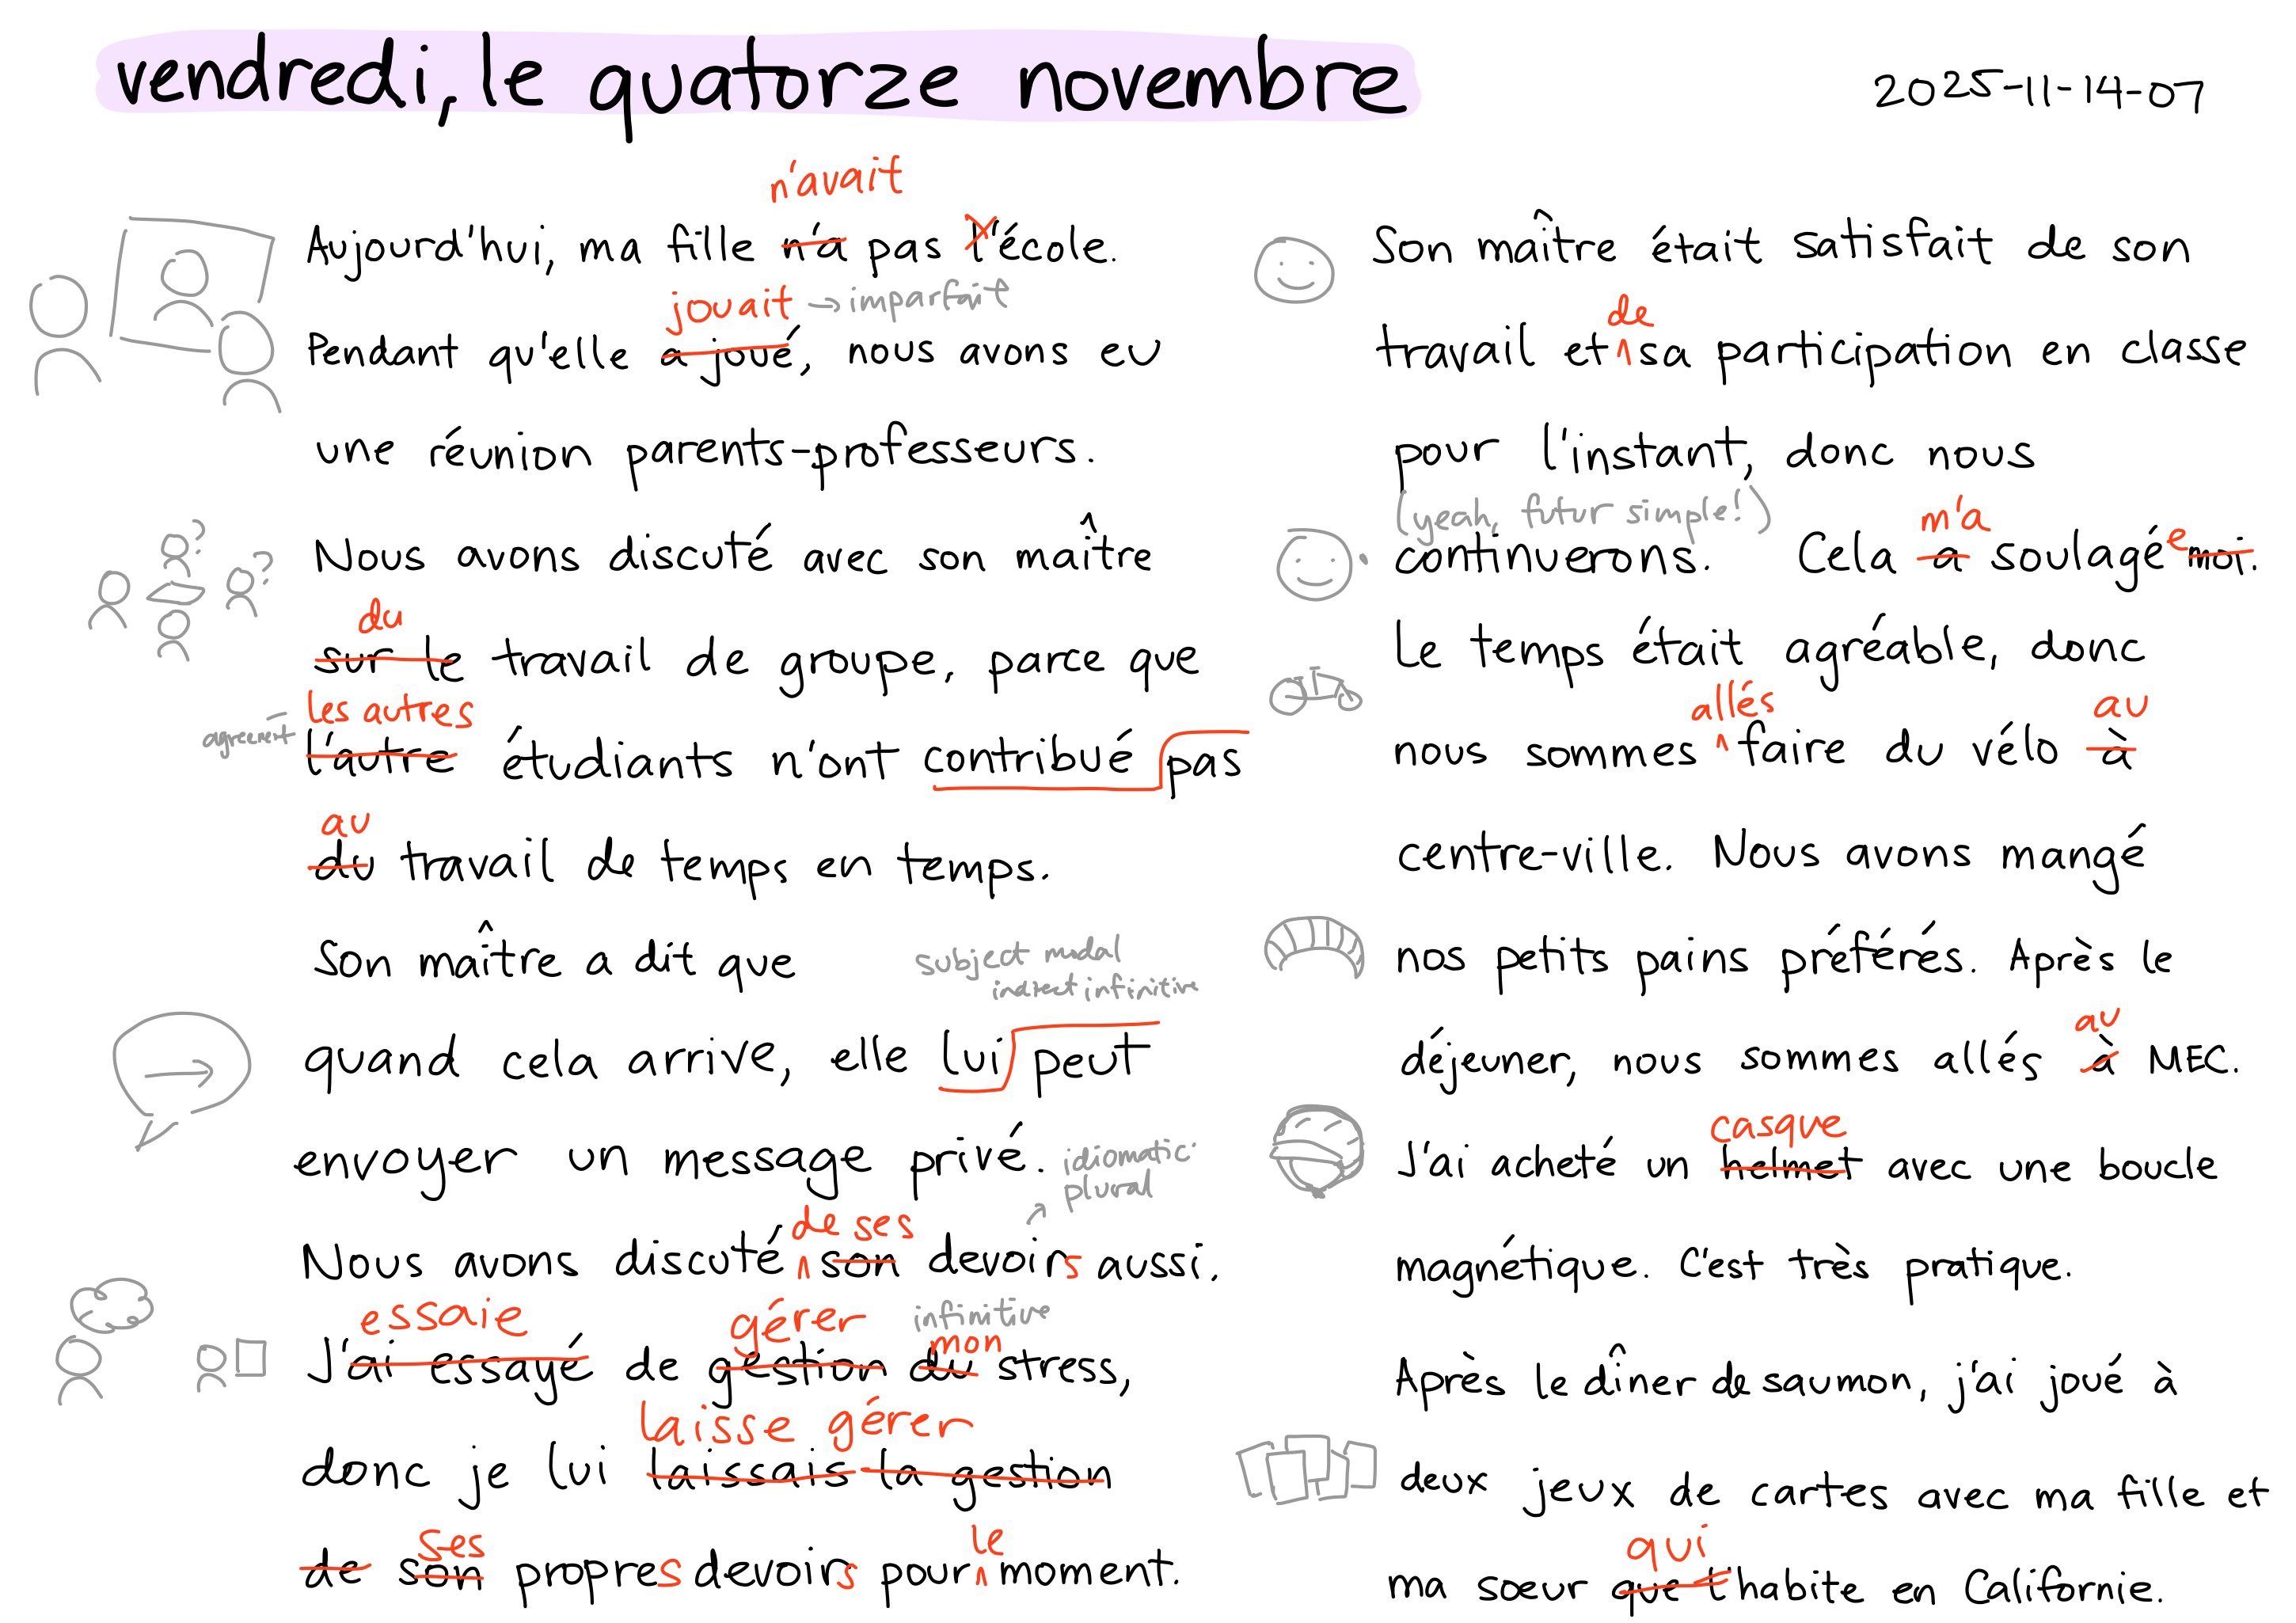 vendredi, le quatorze novembre
2025-11-14-07
n'avait
Aujourd'hui, ma fille n'a pas l'école.
jouait → imparfait
Pendant qu'elle a joué, nous avons eu
une réunion parents-professeurs.
Nous avons discuté avec son maître
du
sur le travail de groupe, parce que
les autres
agreement
l'autre étudiants n'ont contribué pas
au
du travail de temps en temps.
Son maître a dit que
subject modal
indirect infinitive
quand cela arrive, elle lui peut
envoyer un message privé.
idiomatic
plural
de ses
Nous avons discuté son devoirs aussi.
essaie gérer infinitive
mon
J'ai essayé de gestion du stress,
laisse gérer
donc je lui laissais la gestion
ses le
de son propres devoirs pour moment.
Son maître était satisfait de son
de
travail et sa participation en classe
pour l'instant, donc nous
(yeah, futur simple!) m'a
continuerons. Cela a soulagée moi.
Le temps était agréable, donc
allés au
nous sommes faire du vélo à
centre-ville. Nous avons mangé
nos petits pains préférés. Après le
au
déjeuner, nous sommes allés à MEC.
casque
J'ai acheté un helmet avec une boucle
magnétique. C'est très pratique.
Après le dîner de saumon, j'ai joué à
deux jeux de cartes avec ma fille et
qui
ma soeur que t habite en Californie.